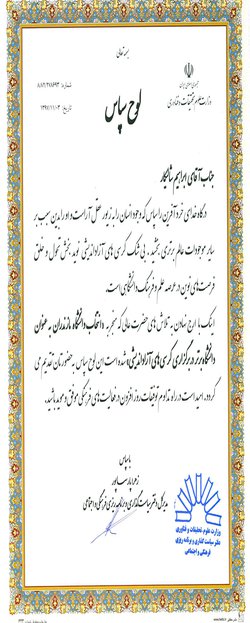 بسمه تعالی
جمهوری اسلامی ایران
وزارت علوم، تحقیقات و فناوری
لوح سپاس
جناب آقای ابراهیم صالحی
درگاه خدای خرد آفرین را سپاس که وجود انسان را به زیور عقل آراست و او را بدین سبب بر
سایر موجودات عالم برتری بخشید. بی شک کرسی های آزاداندیشی نوید بخش تحول و خلق
فرصت های نوین در عرصه علم و فرهنگ دانشگاهی است.
اینک با ارج نهادن به تلاش های حضرت عالی که منجر به «انتخاب دانشگاه مازندران به عنوان
دانشگاه برتر در برگزاری کرسی های آزاداندیشی» شده است این لوح سپاس به حضورتان تقدیم می
گردد. امید است در راه تداوم توفیقات روز افزون در فعالیت های فرهنگی موفق و موید باشید.
با سپاس
زهرا پارساپور
مدیرکل دفتر سیاست گذاری و برنامه ریزی فرهنگی و اجتماعی
وزارت علوم، تحقیقات و فناوری
دفتر سیاست گذاری و برنامه ریزی
فرهنگی و اجتماعی